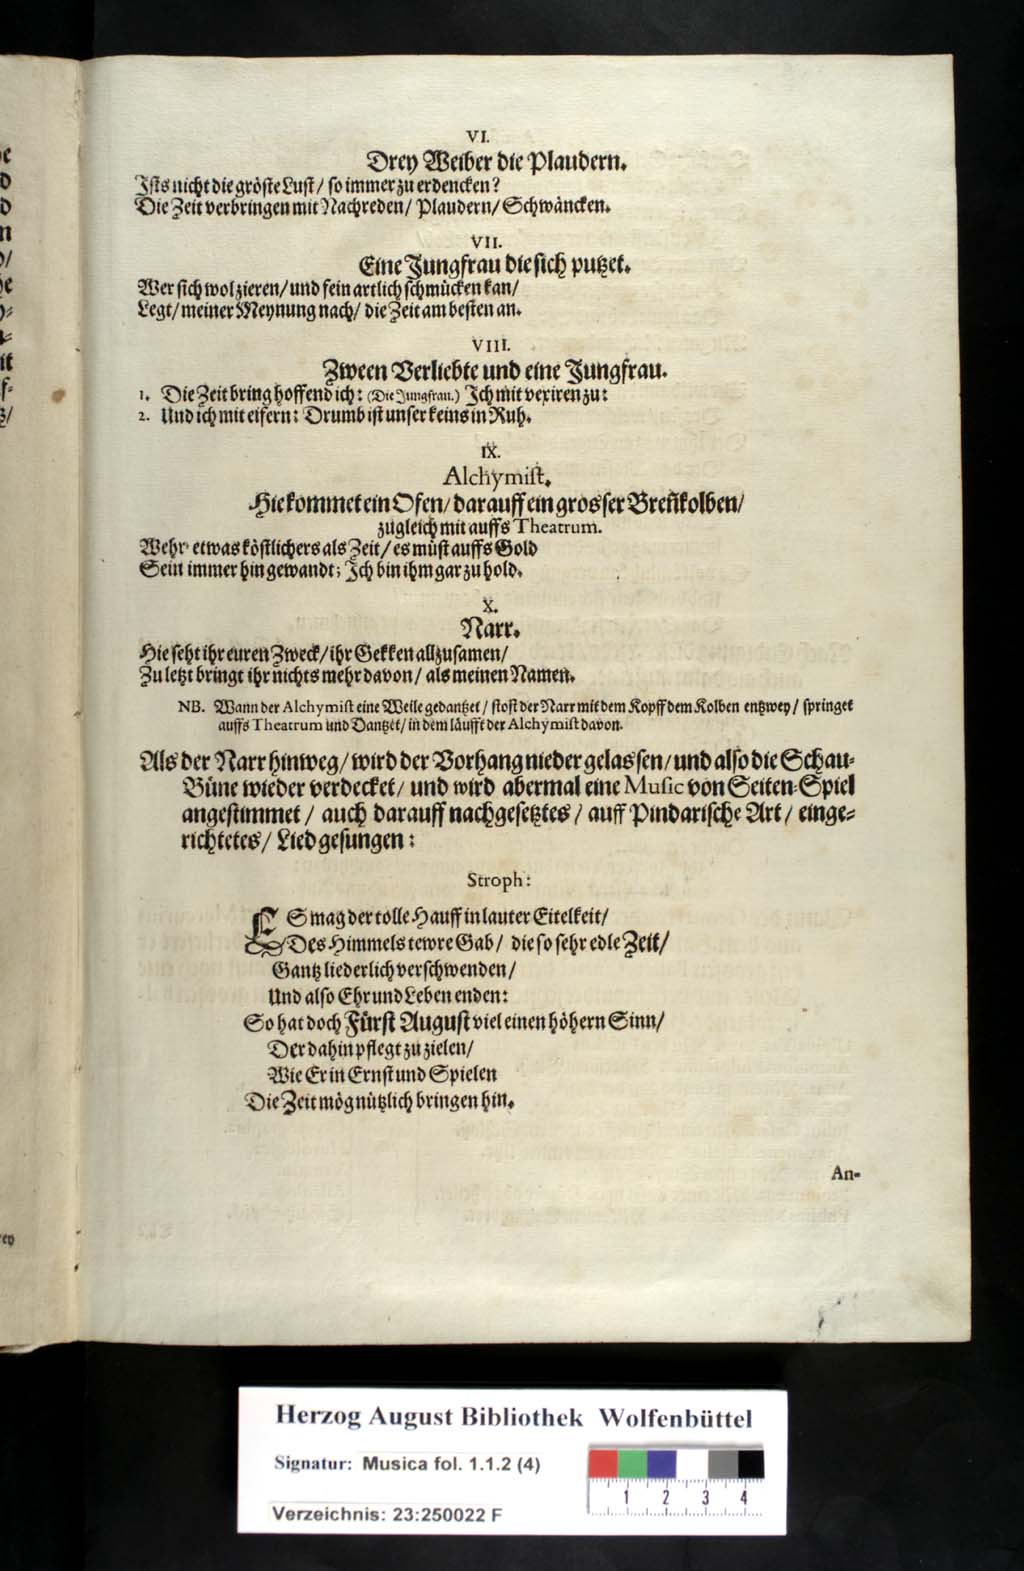 VI.
Drey Weiber die Plaudern.
Ists nicht die gröste Lust/ so immer zu erdencken?
Die Zeit verbringen mit Nachreden/ Plaudern/ Schwäncken.
VII.
Eine Jungfrau die sich putzet.
Wer sich wol zieren/ und fein artlich schmücken kan/
Legt/ meiner Meynung nach/ die Zeit am besten an.
VIII.
Zween Verliebte und eine Jungfrau.
1. Die Zeit bring hoffend ich: (Die Jungfrau.) Ich mit vexiren zu:
2. Und ich mit eifern: Drumb ist unser keins in Ruh.
IX.
Alchymist.
Hie kommet ein Ofen/ darauff ein grosser Breñkolben/
zugleich mit auffs Theatrum.
Wehr etwas köstlichers als Zeit/ es müst auffs Gold
Sein immer hingewandt; Ich bin ihm gar zu hold.
X.
Narr.
Hie seht ihr euren Zweck/ ihr Gekken allzusamen/
Zu letzt bringt ihr nichts mehr davon/ als meinen Namen.
NB. Wann der Alchymist eine Weile gedantzet/ stost der Narr mit dem Kopff dem Kolben entzwey/ springet
auffs Theatrum und Dantzet/ in dem läufft der Alchymist davon.
Als der Narr hinweg/ wird der Vorhang nieder gelassen/ und also die Schau-
Büne wieder verdecket/ und wird abermal eine Music von Seiten-Spiel
angestimmet/ auch darauff nachgesetztes/ auff Pindarische Art/ einge-
richtetes/ Lied gesungen:
Stroph:
ES mag der tolle Hauff in lauter Eitelkeit/
Des Himmels tewre Gab/ die so sehr edle Zeit/
Gantz liederlich verschwenden/
Und also Ehr und Leben enden:
So hat doch Fürst August viel einen höhern Sinn/
Der dahin pflegt zu zielen/
Wie Er in Ernst und Spielen
Die Zeit mög nützlich bringen hin.
An-
Herzog August Bibliothek Wolfenbüttel
Signatur: Musica fol. 1.1.2 (4)
1 2 3 4
Verzeichnis: 23:250022 F